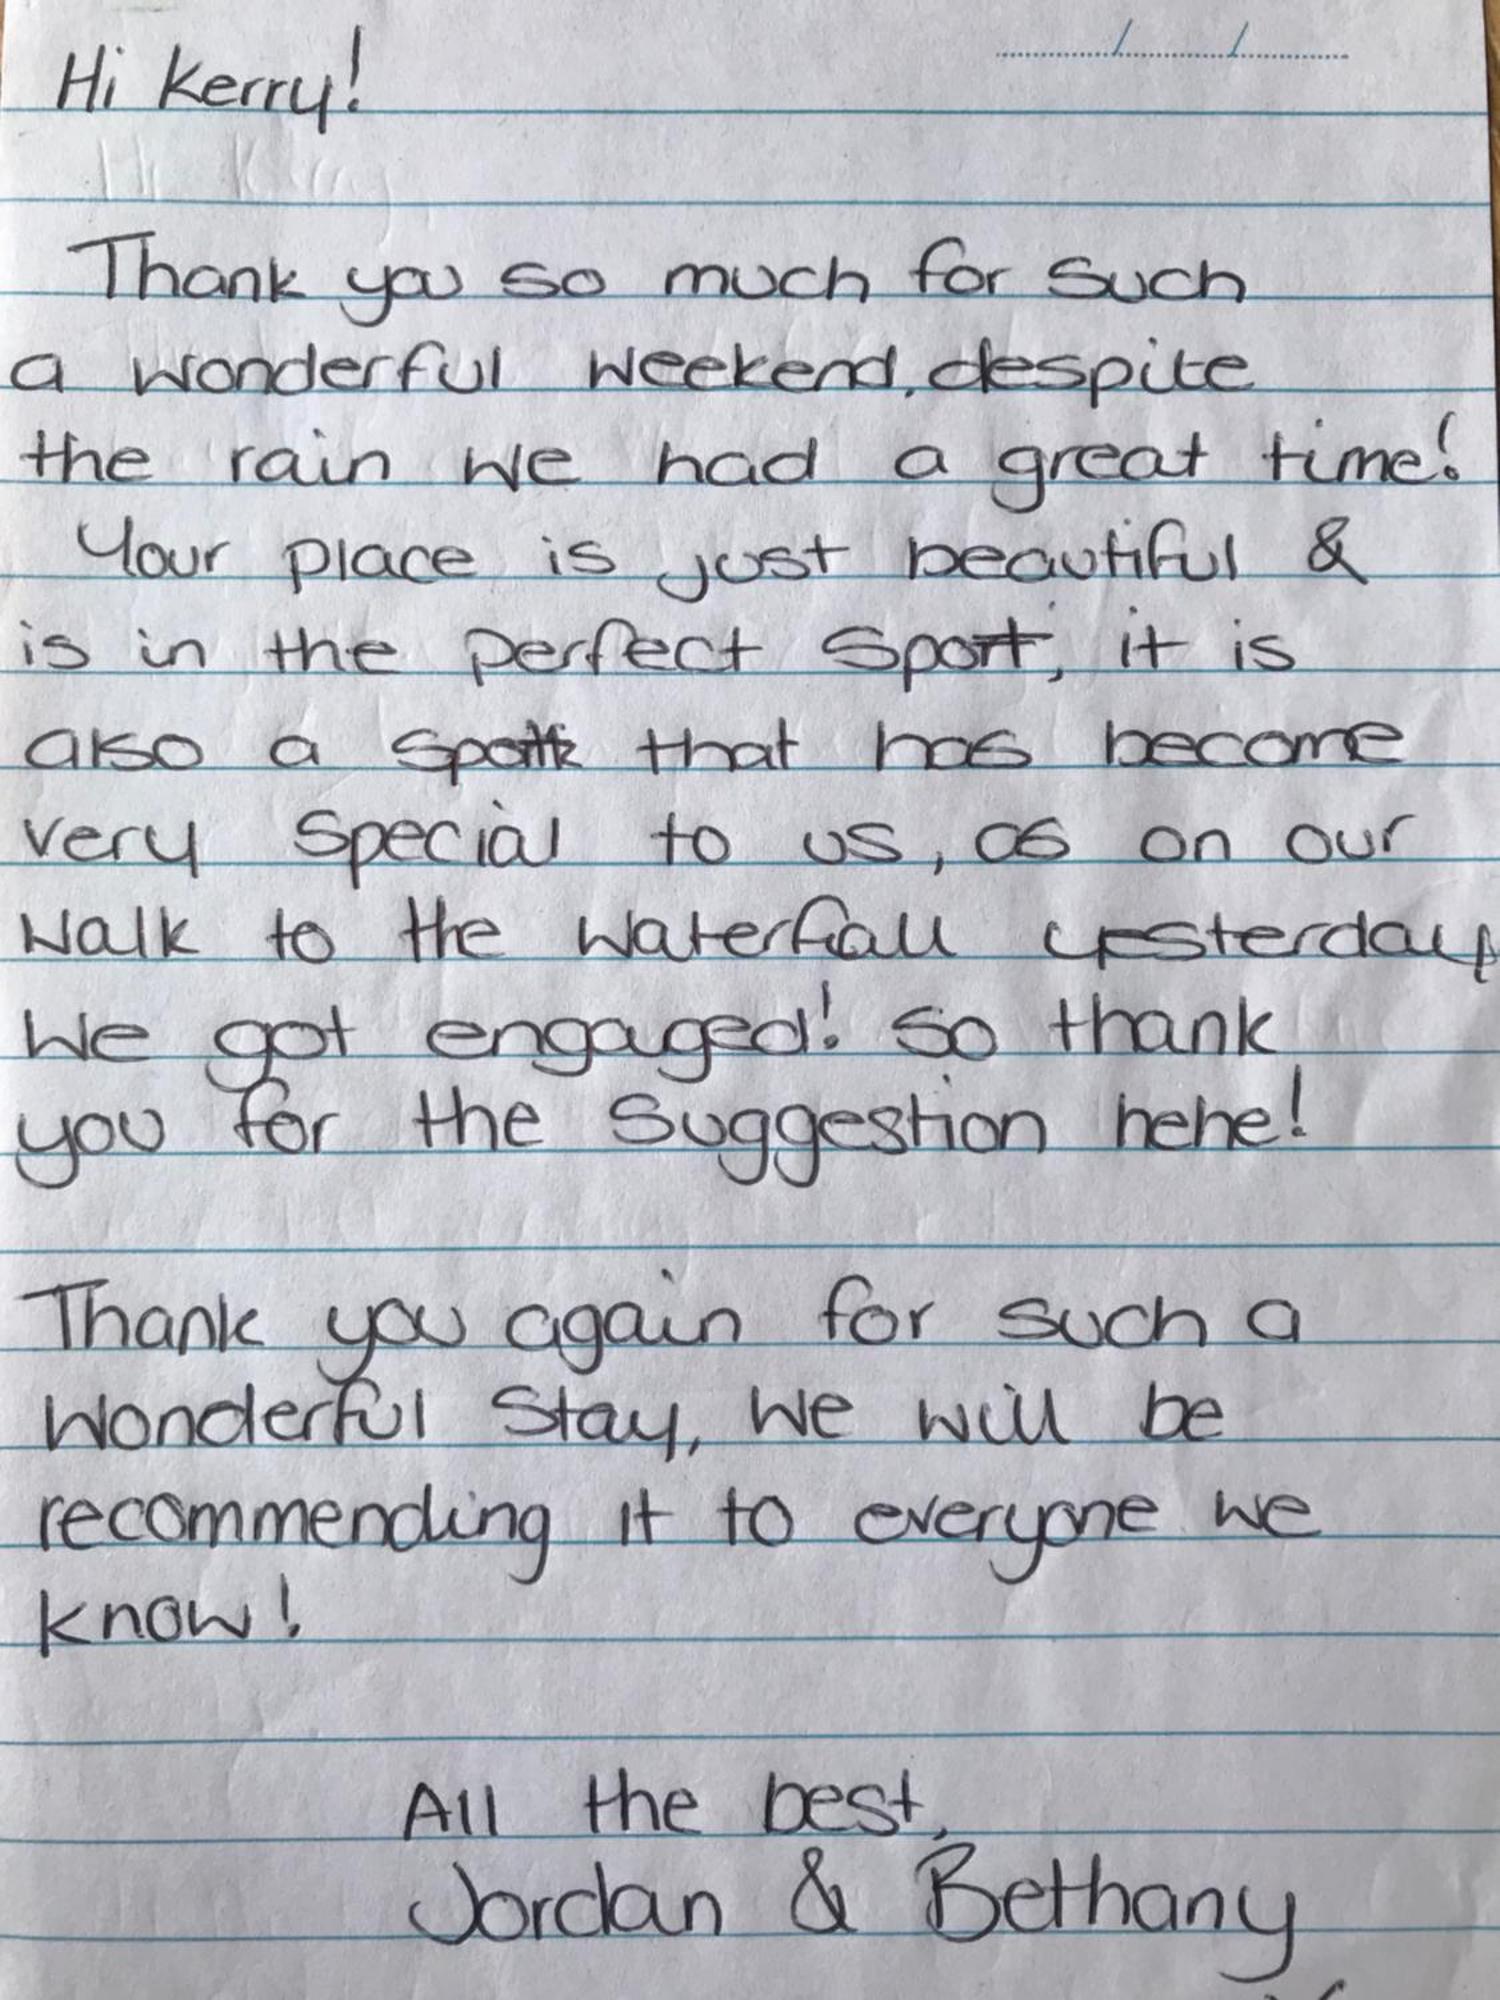 Hi Kerry!
Thank you so much for such
a wonderful weekend, despite
the rain we had a great time!
Your place is just beautiful &
is in the perfect spot, it is
also a spot that has become
very special to us, as on our
walk to the waterfall yesterday
we got engaged! So thank
you for the suggestion hehe!
Thank you again for such a
wonderful stay, we will be
recommending it to everyone we
know!
All the best,
Jordan & Bethany